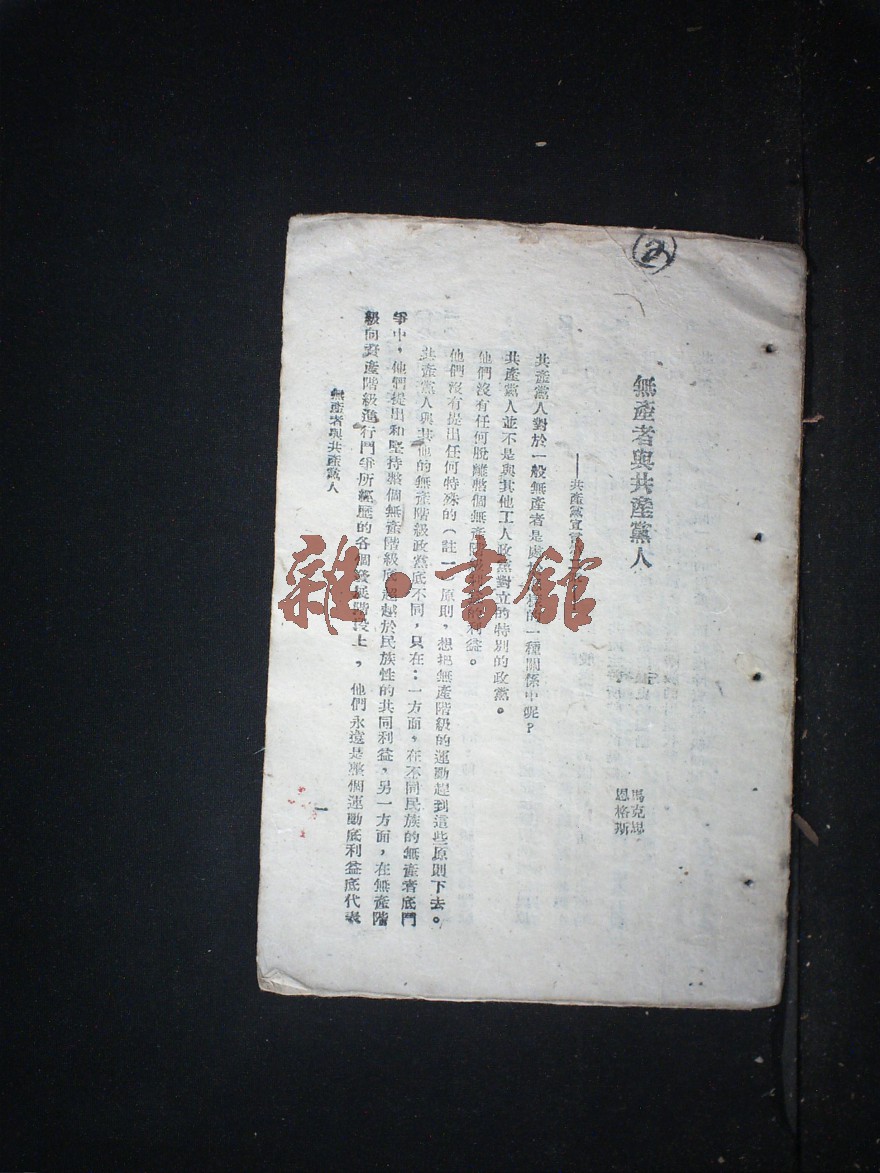 2
無產者與共產黨人
馬克思
恩格斯
——共產黨宣言
共產黨人對於一般無產者是處的一種關係中呢？
共產黨人並不是與其他工人政黨對立的特別的政黨。
他們沒有任何脫離整個無產階級利益。
他們沒有提出任何特殊的（註一）原則，想把無產階級的運動趕到這些原則下去。
共產黨人與其他的無產階級政黨底不同，只在：一方面，在不同民族的無產者底鬥
爭中，他們提出和堅持整個無產階級底超越於民族性的共同利益，另一方面，在無產階
級向資產階級進行鬥爭所經歷的各個發展階段上，他們永遠是整個運動底利益底代表
無產者與共產黨人
一
雜·書館